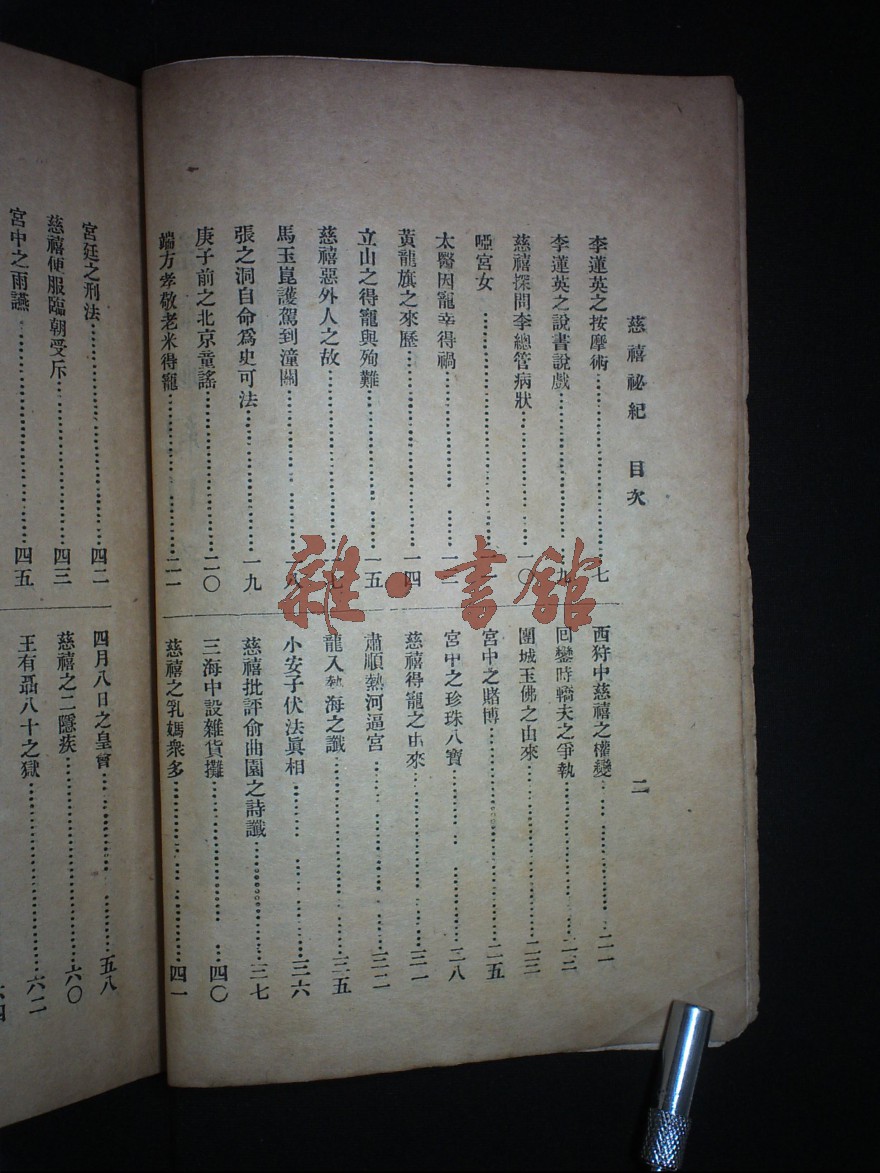 慈禧祕紀 目次
二
李蓮英之按摩術……七
李蓮英之說書說戲……九
慈禧探問李總管病狀……一〇
啞宮女……
太醫因寵幸得禍……一二
黃龍旗之來歷……一四
立山之得寵與殉難……一五
慈禧惡外人之故……一七
馬玉崑護駕到潼關……一八
張之洞自命爲史可法……一九
庚子前之北京童謠……二〇
端方孝敬老米得寵……二一
西狩中慈禧之權變……二一
回鑾時轎夫之爭執……二二
團城玉佛之由來……二三
宮中之賭博……二五
宮中之珍珠八寶……二八
慈禧得寵之由來……三一
肅順熱河逼宮……三二
龍入熱海之讖……三五
小安子伏法眞相……三六
慈禧批評俞曲園之詩讖……三七
三海中設雜貨攤……四〇
慈禧之乳媽衆多……四一
宮廷之刑法……四二
慈禧便服臨朝受斥……四三
宮中之雨讌……四五
四月八日之皇會……五八
慈禧之二隱疾……六〇
王有聶八十之獄……六二
六四
雜·書館